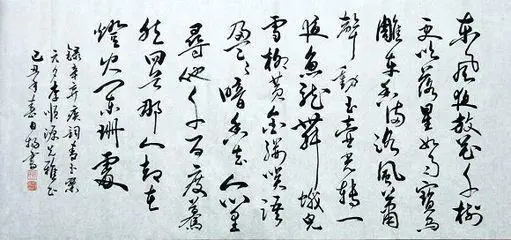 東風夜放花千樹
更吹落星如雨寶馬
雕車香滿路風簫
聲動玉壺光轉一
夜魚龍舞蛾兒
雪柳黃金縷笑語
盈盈暗香去眾里
尋他千百度驀
然回首那人却在
燈火闌珊處
錄辛棄疾詞青玉案
元夕李順源先雅正
己丑年春日書